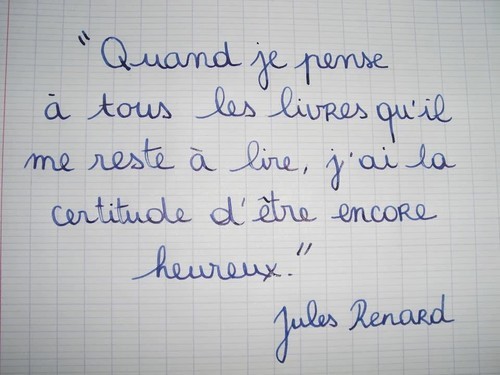 "Quand je pense
à tous les livres qu'il
me reste à lire, j'ai la
certitude d'être encore
heureux."
Jules Renard